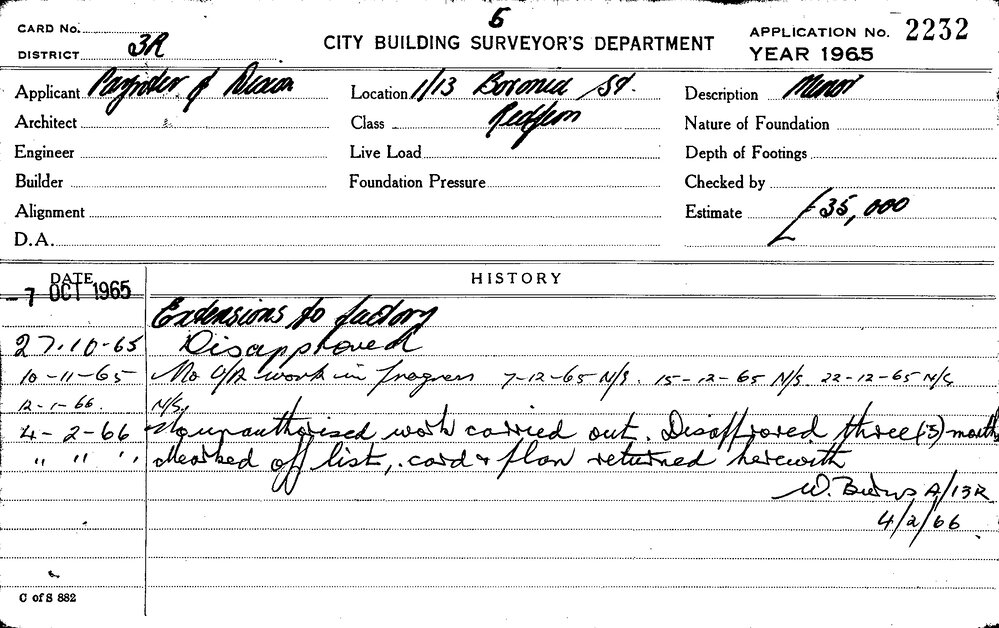 5
CARD No.
DISTRICT 3R
CITY BUILDING SURVEYOR'S DEPARTMENT
APPLICATION No. 2232
YEAR 1965
Applicant & Dixon
Location 1/13 Boronia St.
Description Minor
Architect
Class Redfern
Nature of Foundation
Engineer
Live Load
Depth of Footings
Builder
Foundation Pressure
Checked by
Alignment
Estimate £35,000
D.A.
DATE
HISTORY
-7 OCT 1965
Extensions to factory
27.10-65 Disapproved
10-11-65 No U/A work in progress 7-12-65 N/S. 15-12-65 N/S. 22-12-65 N/S
12-1-66. N/S,
4-2-66 No unauthorised work carried out. Disapproved three (3) months
" " " Marked off list, card & plan returned herewith
W. Burns A/13R
4/2/66
C of S 882